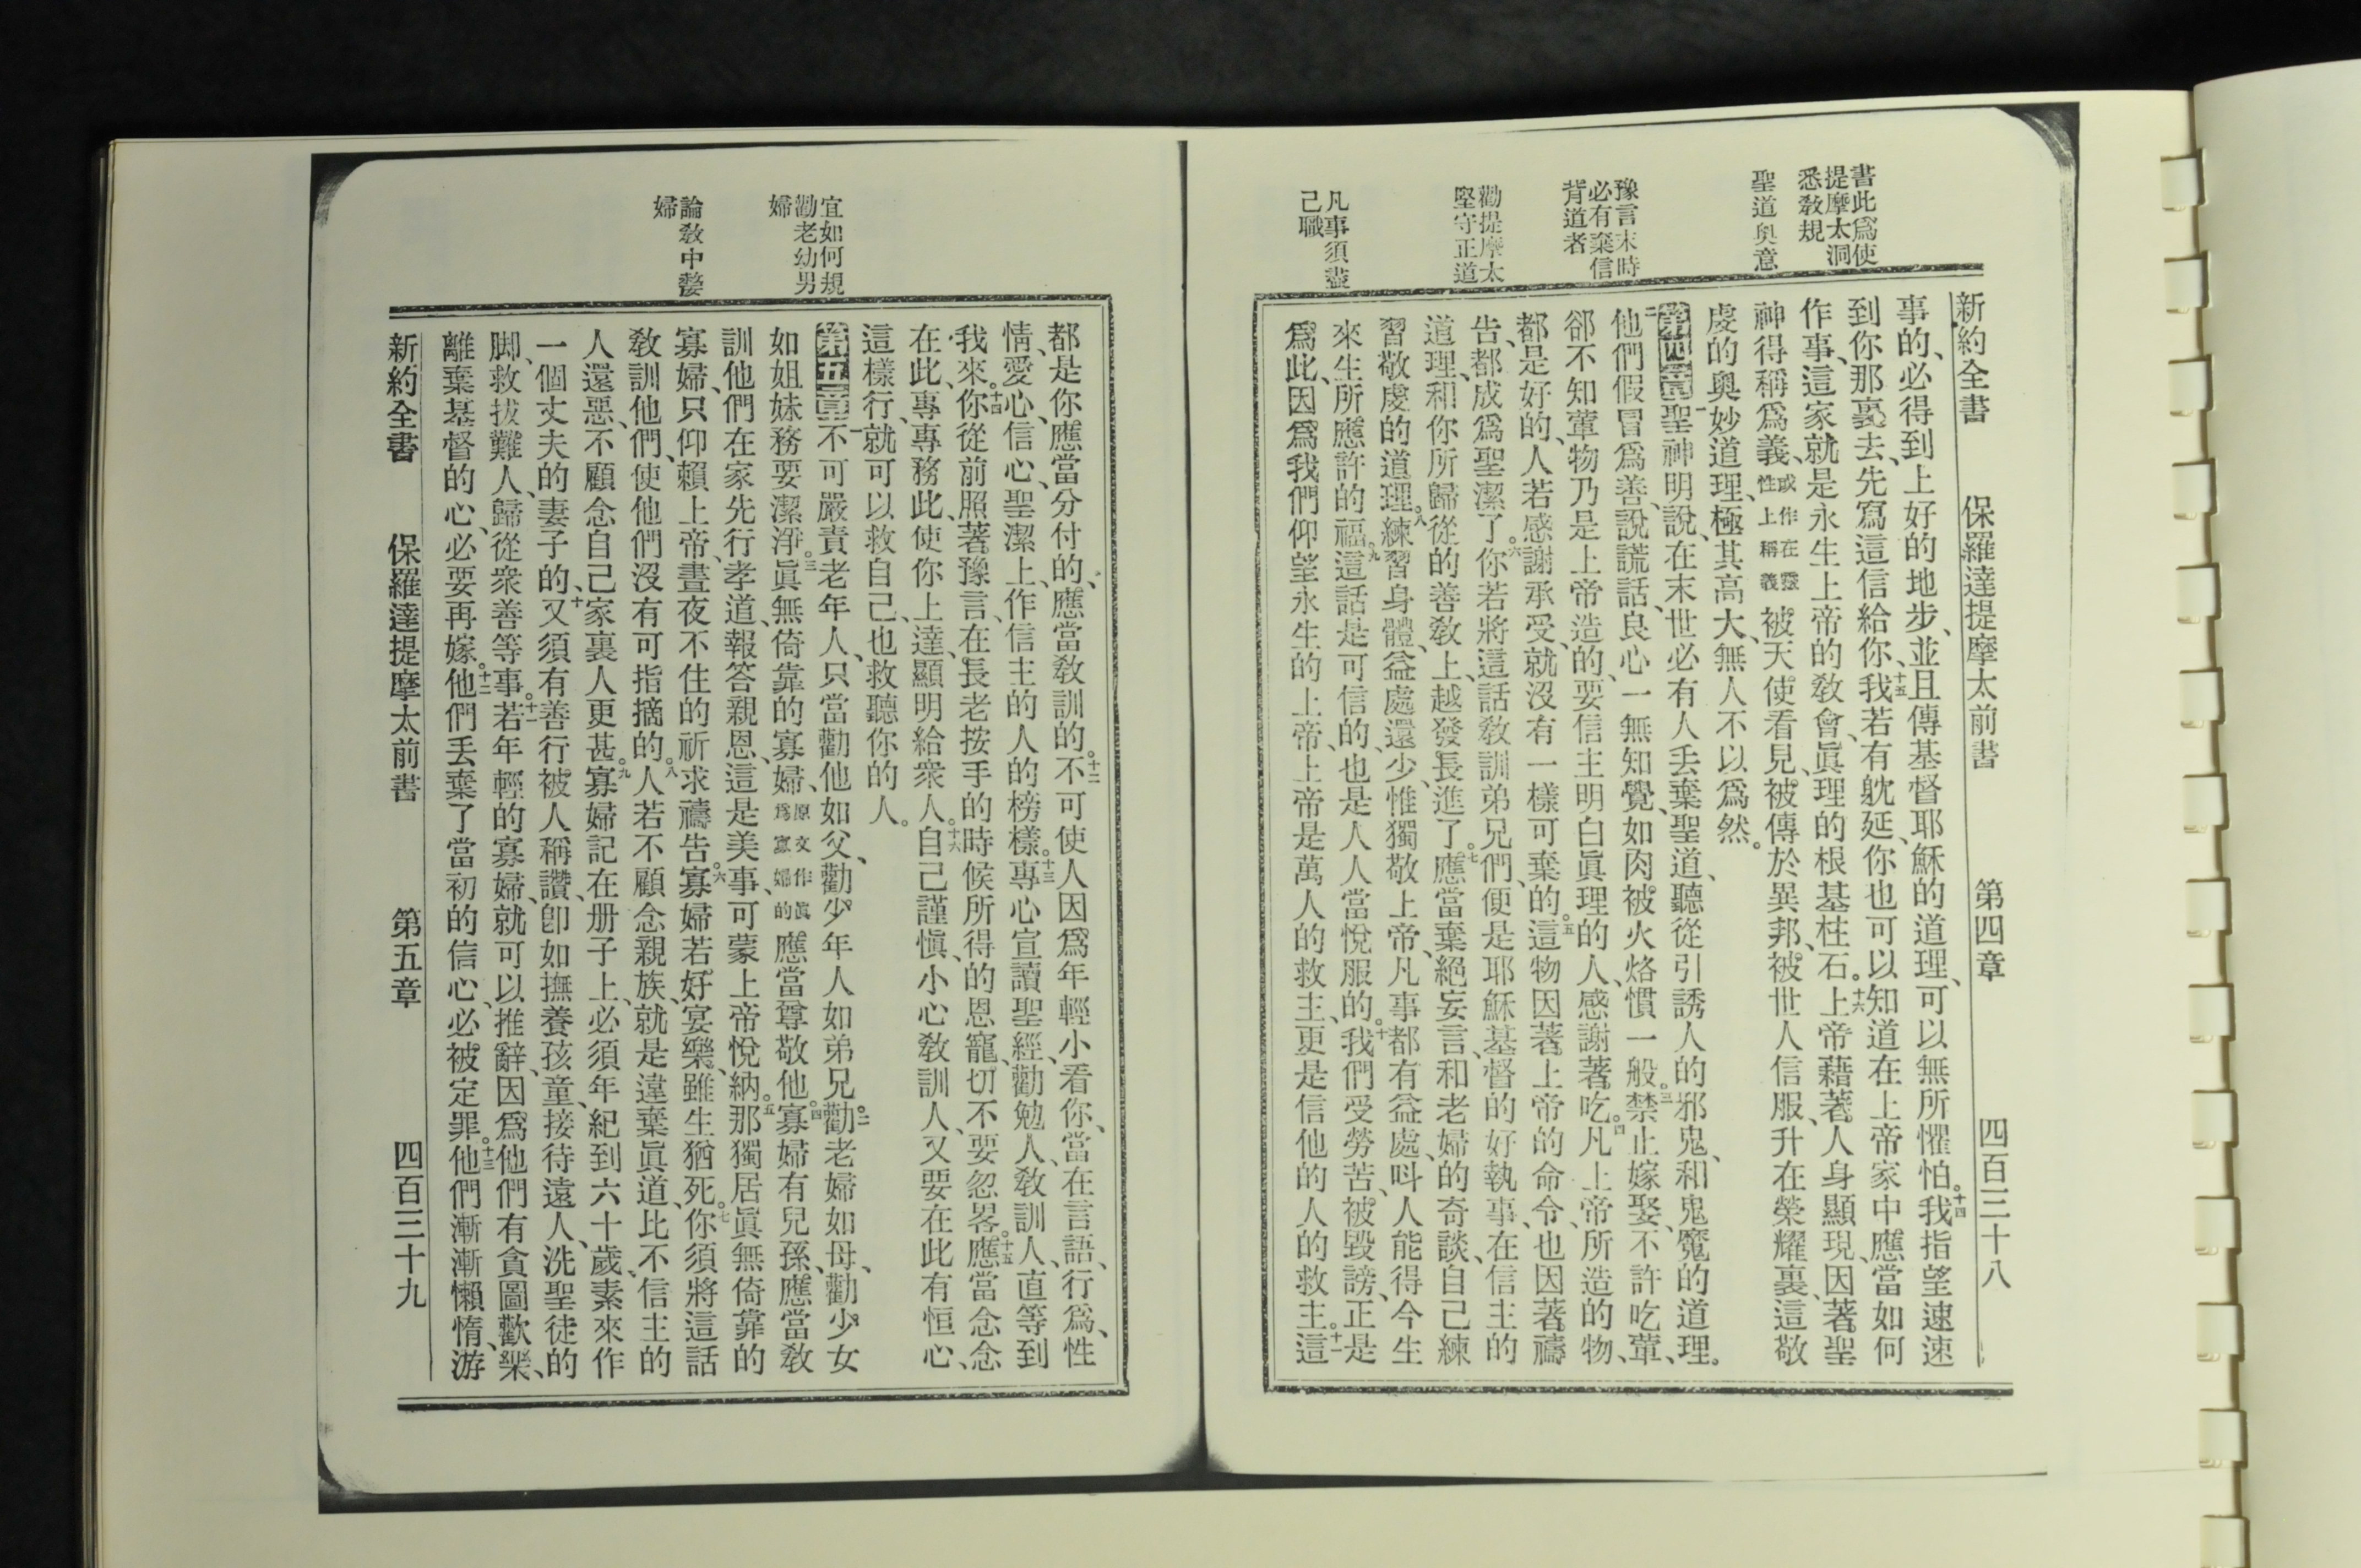 新約全書　保羅達提摩太前書　第四章　四百三十八
書此爲使
提摩太洞
悉敎規
聖道奧意
豫言末時
必有棄信
背道者
勸提摩太
堅守正道
凡事須盡
己職
事的、必得到上好的地步、並且傳基督耶穌的道理、可以無所懼怕。十四我指望速速
到你那裏去、先寫這信給你、十五我若有躭延、你也可以知道在上帝家中應當如何
作事、這家就是永生上帝的敎會、眞理的根基柱石。十六上帝藉著人身顯現、因著聖
神得稱爲義、或作在靈性上稱義被天使看見、被傳於異邦、被世人信服、升在榮耀裏、這敬
虔的奧妙道理、極其高大、無人不以爲然。
第四章一聖神明說、在末世必有人丢棄聖道、聽從引誘人的邪鬼、和鬼魔的道理。
二他們假冒爲善、說謊話、良心一無知覺、如肉被火烙慣一般。三禁止嫁娶、不許吃葷、
郤不知葷物乃是上帝造的、要信主明白眞理的人、感謝著吃。四凡上帝所造的物、
都是好的、人若感謝承受、就沒有一樣可棄的。五這物因著上帝的命令、也因著禱
告、都成爲聖潔了。六你若將這話敎訓弟兄們、便是耶穌基督的好執事、在信主的
道理、和你所歸從的善敎上、越發長進了。七應當棄絕妄言、和老婦的奇談、自己練
習敬虔的道理。八練習身體、益處還少、惟獨敬上帝、凡事都有益處、呌人能得今生
來生所應許的福。九這話是可信的、也是人人當悅服的。十我們受勞苦、被毀謗、正是
爲此、因爲我們仰望永生的上帝、上帝是萬人的救主、更是信他的人的救主。十一這
宜如何規
勸老幼男
婦
論敎中嫠
婦
都是你應當分付的、應當敎訓的。十二不可使人因爲年輕小看你、當在言語、行爲、性
情、愛心、信心、聖潔上、作信主的人的榜樣。十三專心宣讀聖經、勸勉人、敎訓人、直等到
我來。十四你從前照著豫言、在長老按手的時候所得的恩寵、切不要忽畧。十五應當念念
在此、專專務此、使你上達、顯明給衆人。十六自己謹愼、小心敎訓人、又要在此有恒心、
這樣行、就可以救自己、也救聽你的人。
第五章一不可嚴責老年人、只當勸他如父、勸少年人如弟兄。二勸老婦如母、勸少女
如姐妹務要潔淨。三眞無倚靠的寡婦、原文作眞爲寡婦的應當尊敬他。四寡婦有兒孫、應當敎
訓他們在家先行孝道、報答親恩、這是美事、可蒙上帝悅納。五那獨居眞無倚靠的
寡婦、只仰賴上帝、晝夜不住的祈求禱告。六寡婦若好宴樂、雖生猶死。七你須將這話
敎訓他們、使他們沒有可指摘的。八人若不顧念親族、就是違棄眞道、比不信主的
人還惡、不顧念自己家裏人更甚。九寡婦記在册子上、必須年紀到六十歲、素來作
一個丈夫的妻子的、十又須有善行被人稱讚、卽如撫養孩童、接待遠人、洗聖徒的
脚、救拔難人、歸從衆善等事。十一若年輕的寡婦、就可以推辭、因爲他們有貪圖歡樂、
離棄基督的心、必要再嫁。十二他們丢棄了當初的信心、必被定罪。十三他們漸漸懶惰、游
新約全書　保羅達提摩太前書　第五章　四百三十九